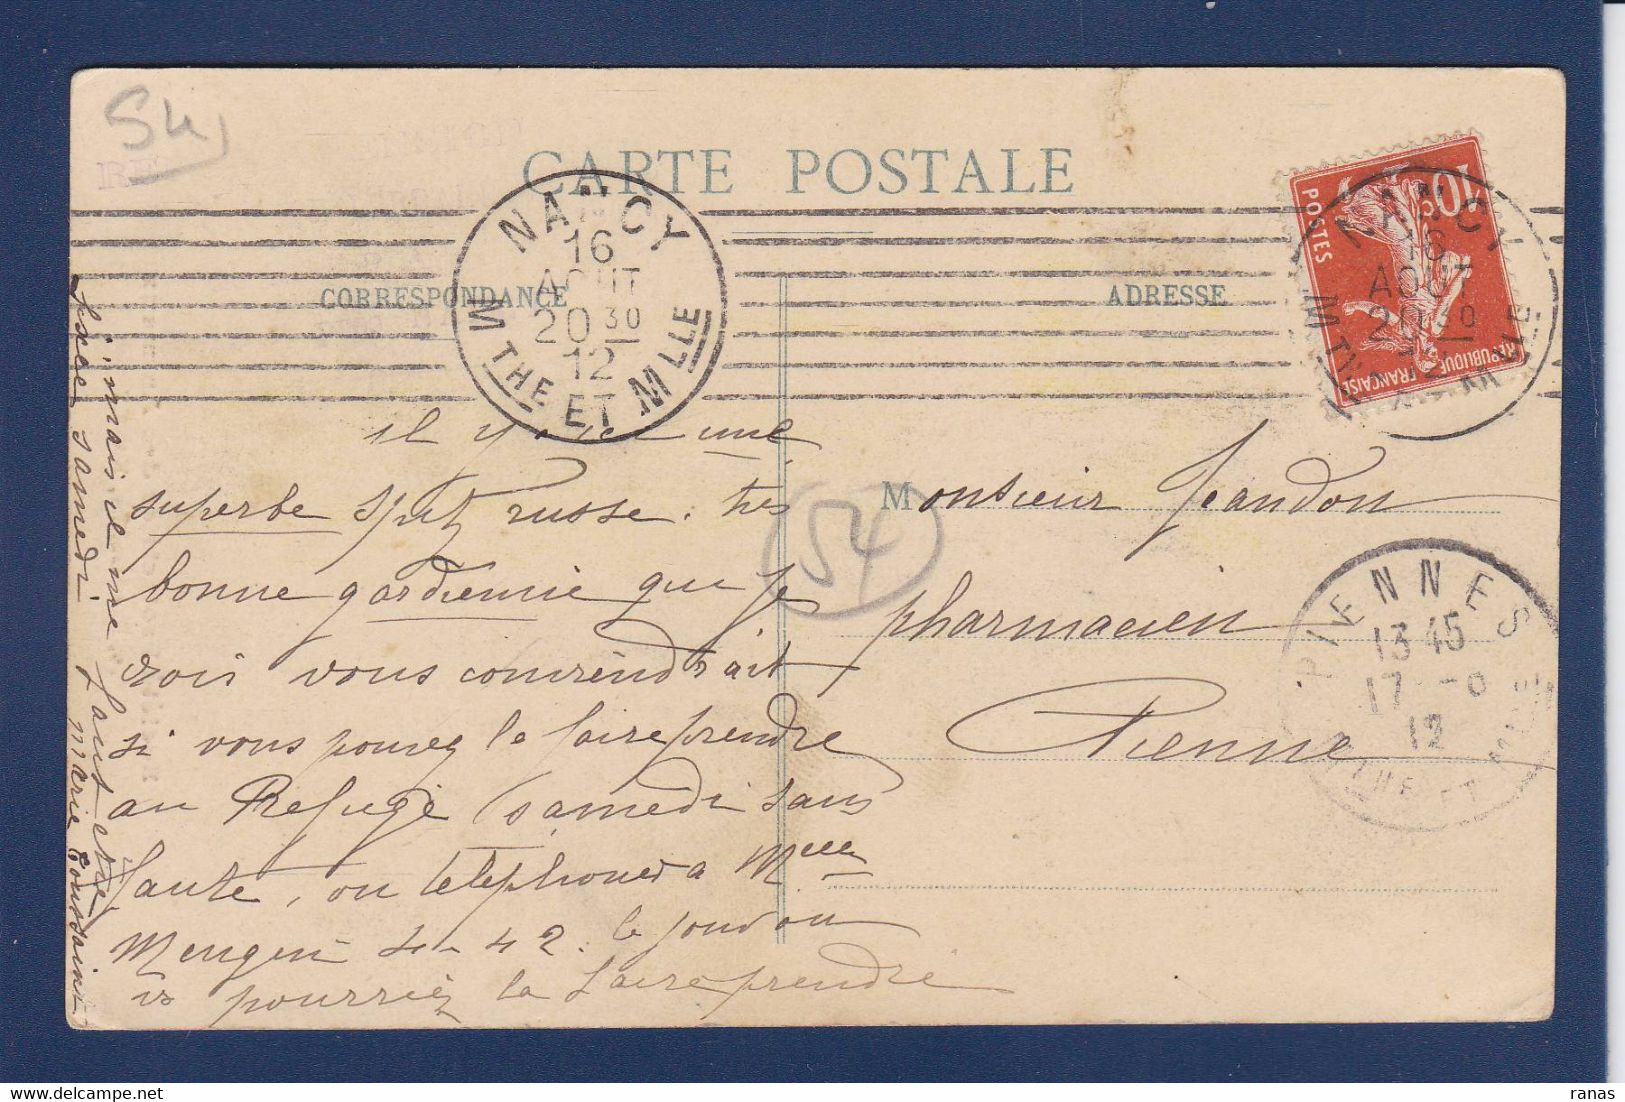 54
CARTE POSTALE
CORRESPONDANCE
ADRESSE
NANCY
16
AOUT
20 30
12
MTHE ET MLLE
NANCY
16
AOUT
20 30
12
10c
POSTES
REPUBLIQUE FRANÇAISE
il y a ici une
superbe Spitz russe. très
bonne gardienne que je
crois vous conviendrait
si vous pouvez le faire prendre
au Refuge (samedi sans
faute, ou telephoner a Melle
Mengin 4-42. le jour ou
vs pourriez la faire prendre
fixer samedi.
Marie Toussaint
54
Monsieur Jeandon
pharmacien
Pienne
PIENNES
13 45
17 - 8
12
MTHE ET MLLE
ranas